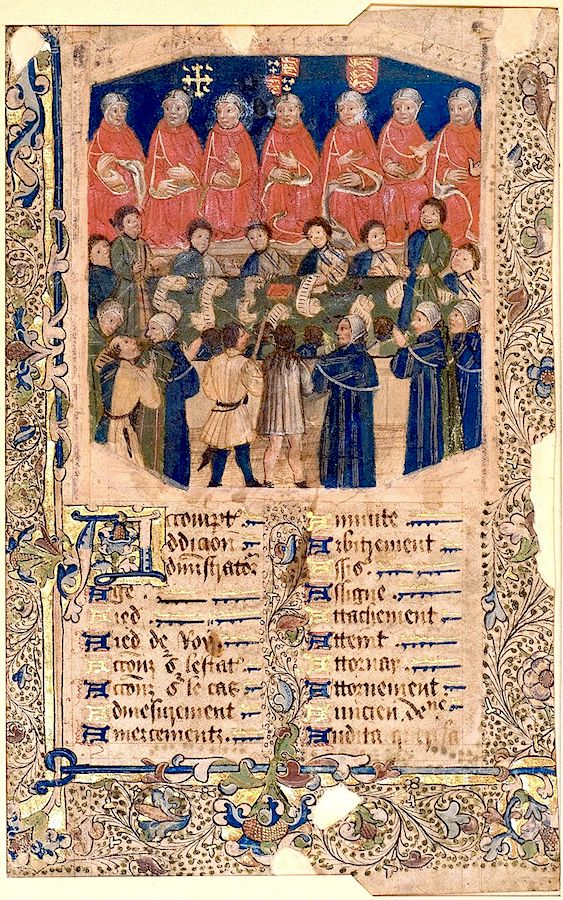 Accompt
Addicion
Administrator
Age
Aied
Aied de Roy
Accion s lestat
Accion s le cas
Admesurement
Amercementz
Annuite
Arbitrement
Assigne
Attachement
Atteint
Attornay
Attornement
Auncien
Audita